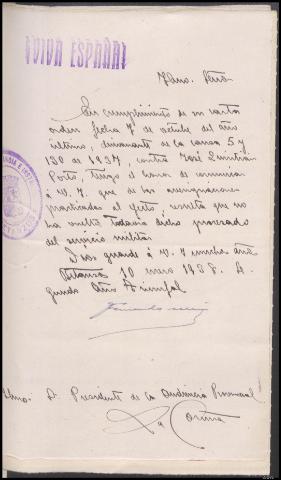 ¡VIVA ESPAÑA!
Iltmo. Señor
En cumplimiento de su carta
orden fecha 7 de octubre del año
último, dimanante de la causa 5 y
130 de 1937, contra José
Porto, tengo el honor de comunicar
á V. I. que de las averiguaciones
practicadas al efecto, resulta que no
ha vuelto todavia dicho procesado
del servicio militar.
Dios guarde á V. I. muchos años
Betanzos 10 enero 1938. Se-
gundo Año Triunfal
Iltmo. S. Presidente de la Audiencia Provincial
La Coruña